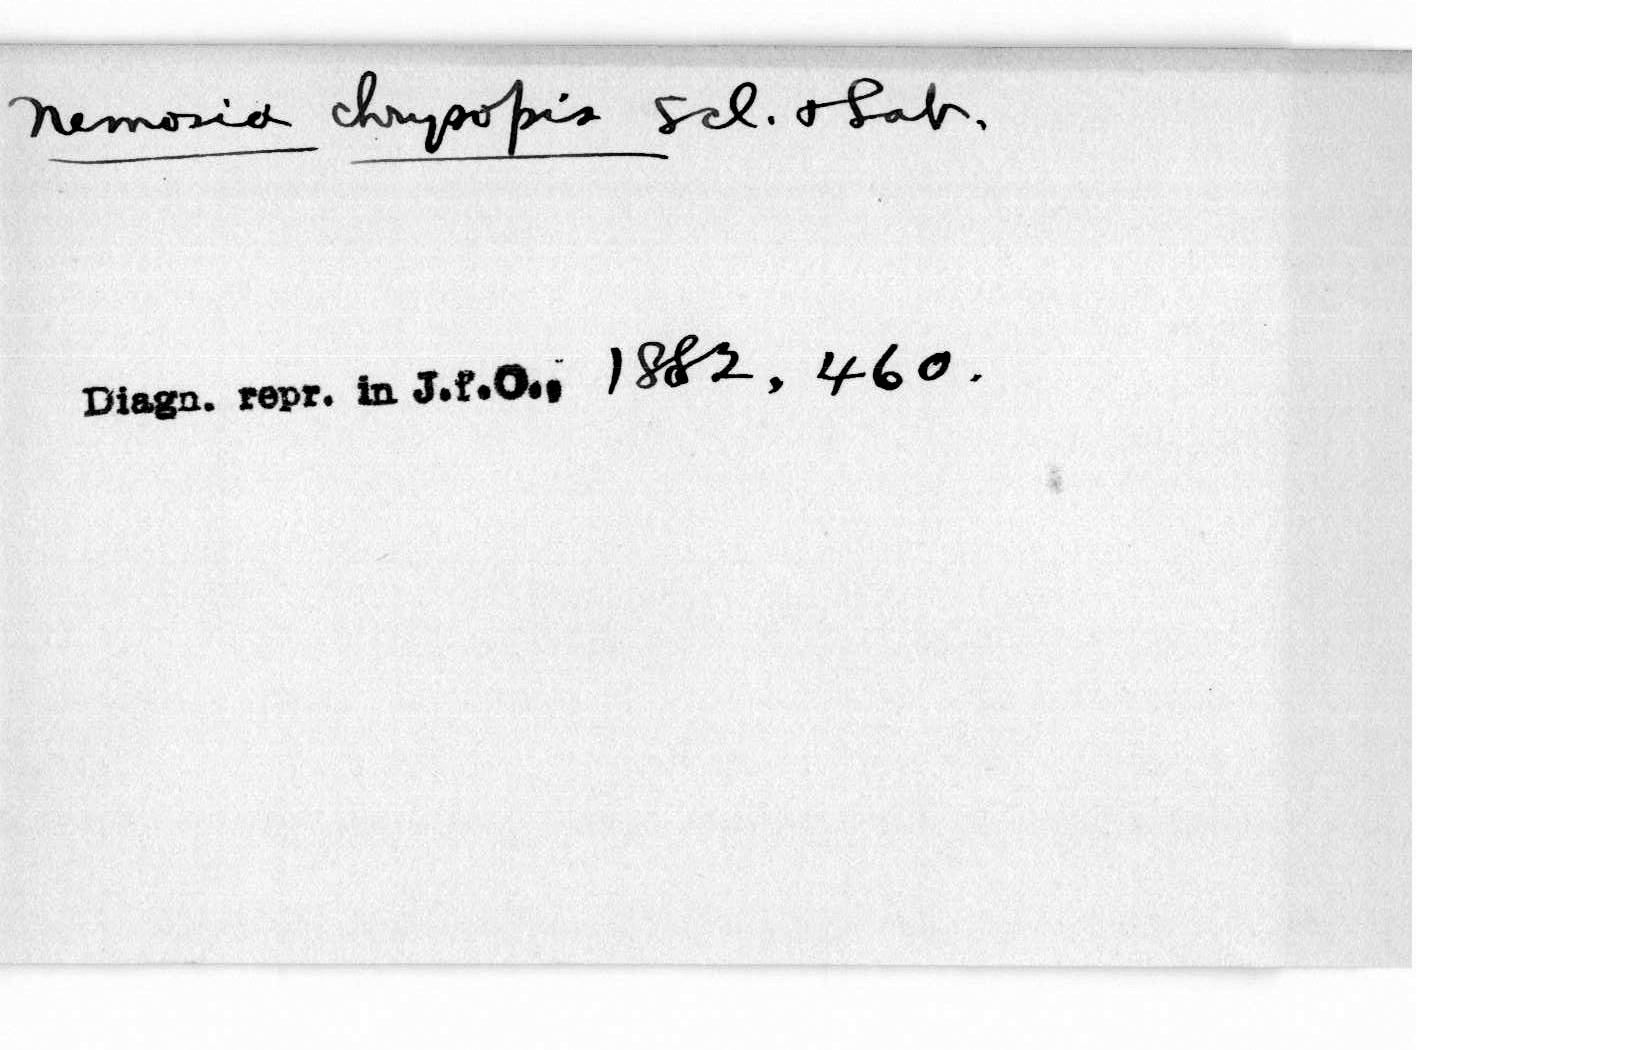 Nemosia chrysopis Scl. & Salv.
Diagn. repr. in J.f.O., 1882, 460.